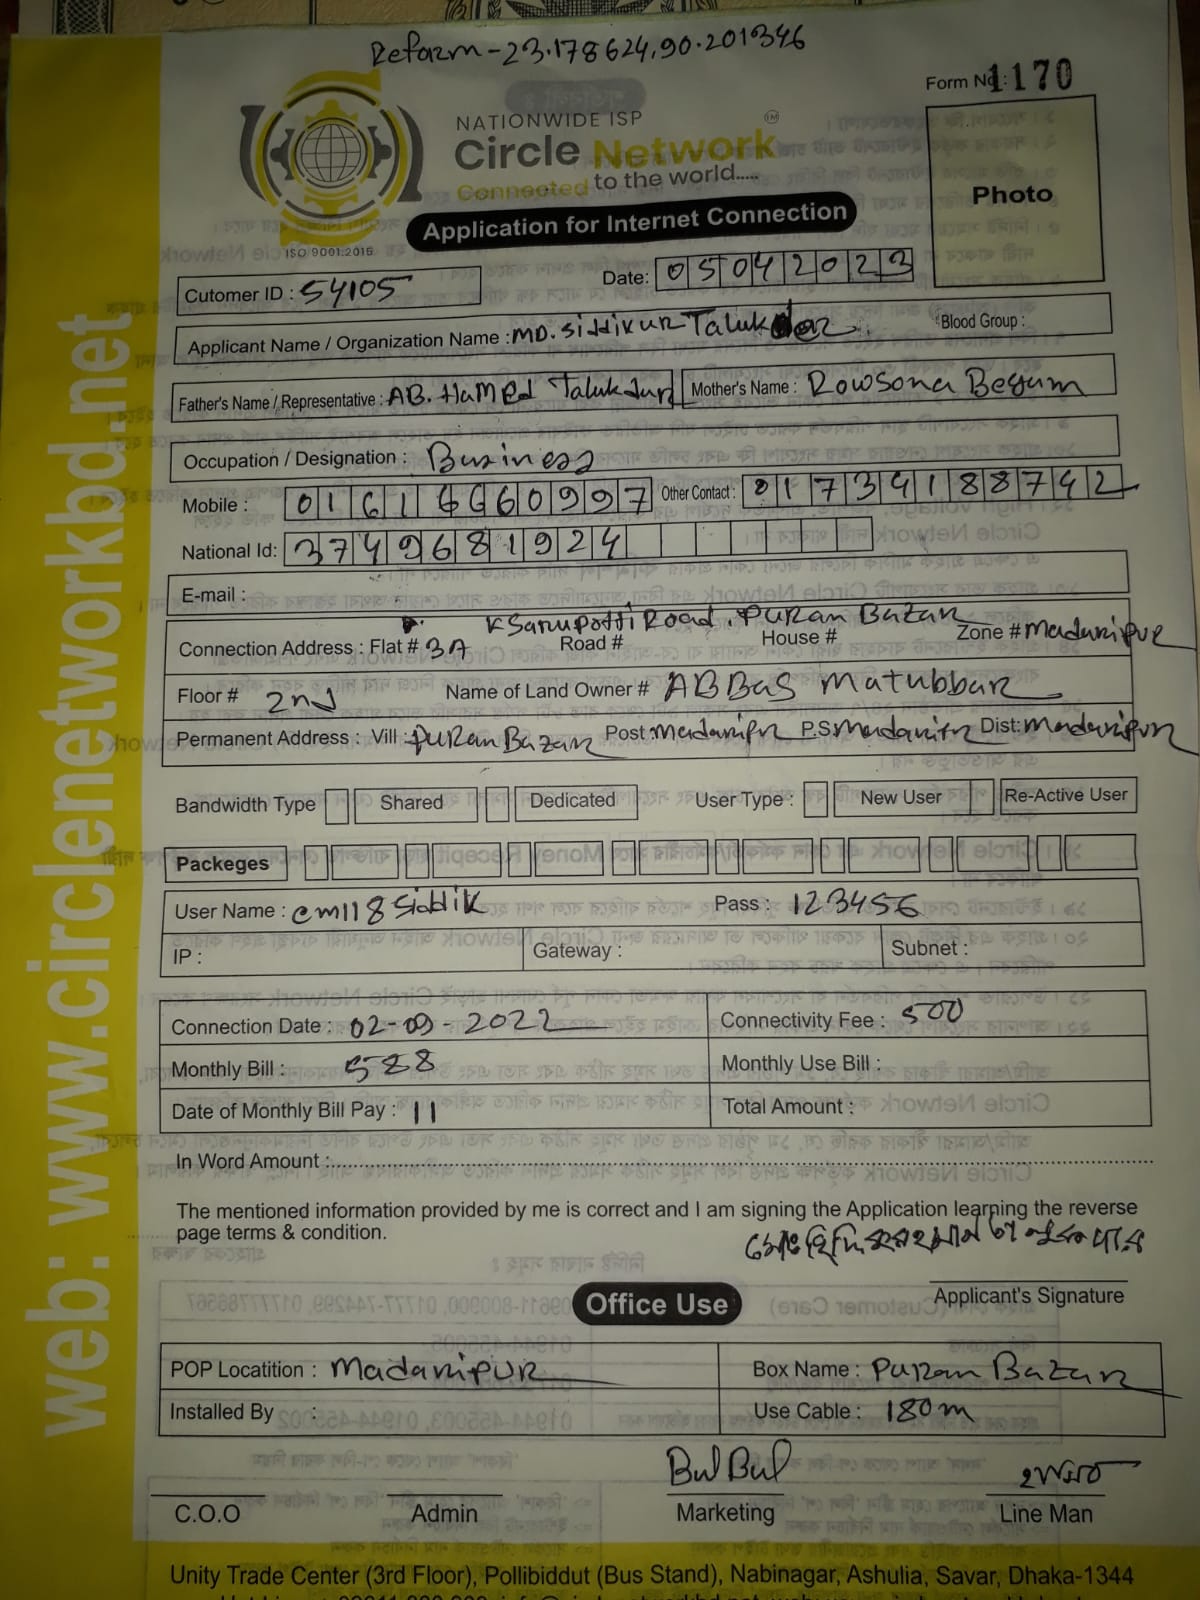 Reform-23.178624,90.201346
Form No: 1170
NATIONWIDE ISP
Circle Network
Connected to the world.....
ISO 9001:2015
Application for Internet Connection
Photo
Cutomer ID : 54105
Date: 05042023
Applicant Name / Organization Name : MD. Siddikur Talukder
Blood Group :
Father's Name / Representative : AB. HaMEd Talukdur
Mother's Name : Rowsona Begum
Occupation / Designation : Business
Mobile : 01616660997
Other Contact : 01734188742
National Id: 3749681924
E-mail :
KSarupotti Road, PURan Bazar
Connection Address : Flat # 3A Road # House # Zone # Madaripur
Floor # 2nd Name of Land Owner # ABBas Matubbar
Permanent Address : Vill : PURan Bazar Post: Madaripur P.S Dist: Madaripur
Bandwidth Type Shared Dedicated User Type : New User Re-Active User
Packeges
User Name : cm118siddik Pass : 123456
IP : Gateway : Subnet :
Connection Date : 02-09-2022 Connectivity Fee : 500
Monthly Bill : 588 Monthly Use Bill :
Date of Monthly Bill Pay : 11 Total Amount :
In Word Amount :
The mentioned information provided by me is correct and I am signing the Application learning the reverse
page terms & condition.
Applicant's Signature
Office Use
POP Locatition : Madaripur Box Name : Puran Bazar
Installed By : Use Cable : 180m
BulBul
C.O.O Admin Marketing Line Man
Unity Trade Center (3rd Floor), Pollibiddut (Bus Stand), Nabinagar, Ashulia, Savar, Dhaka-1344
web: www.circlenetworkbd.net